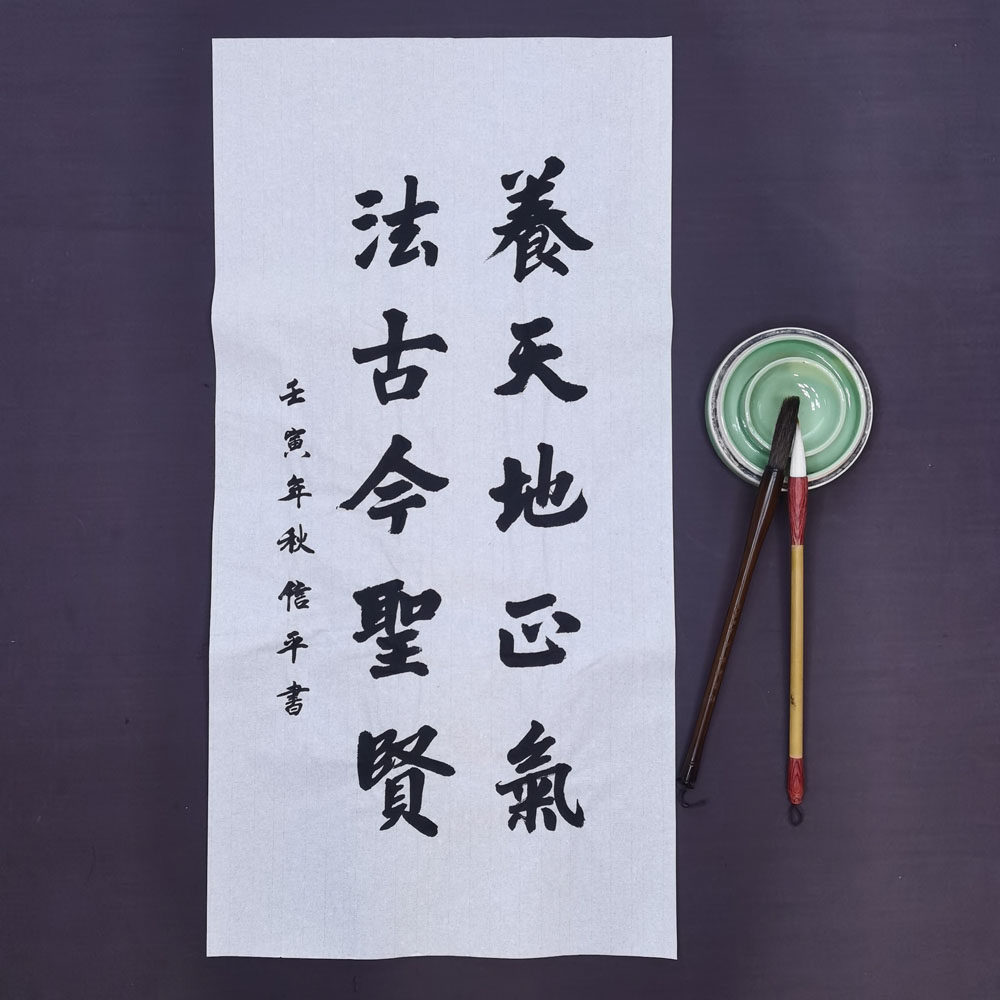 養天地正氣
法古今聖賢
壬寅年秋信平書